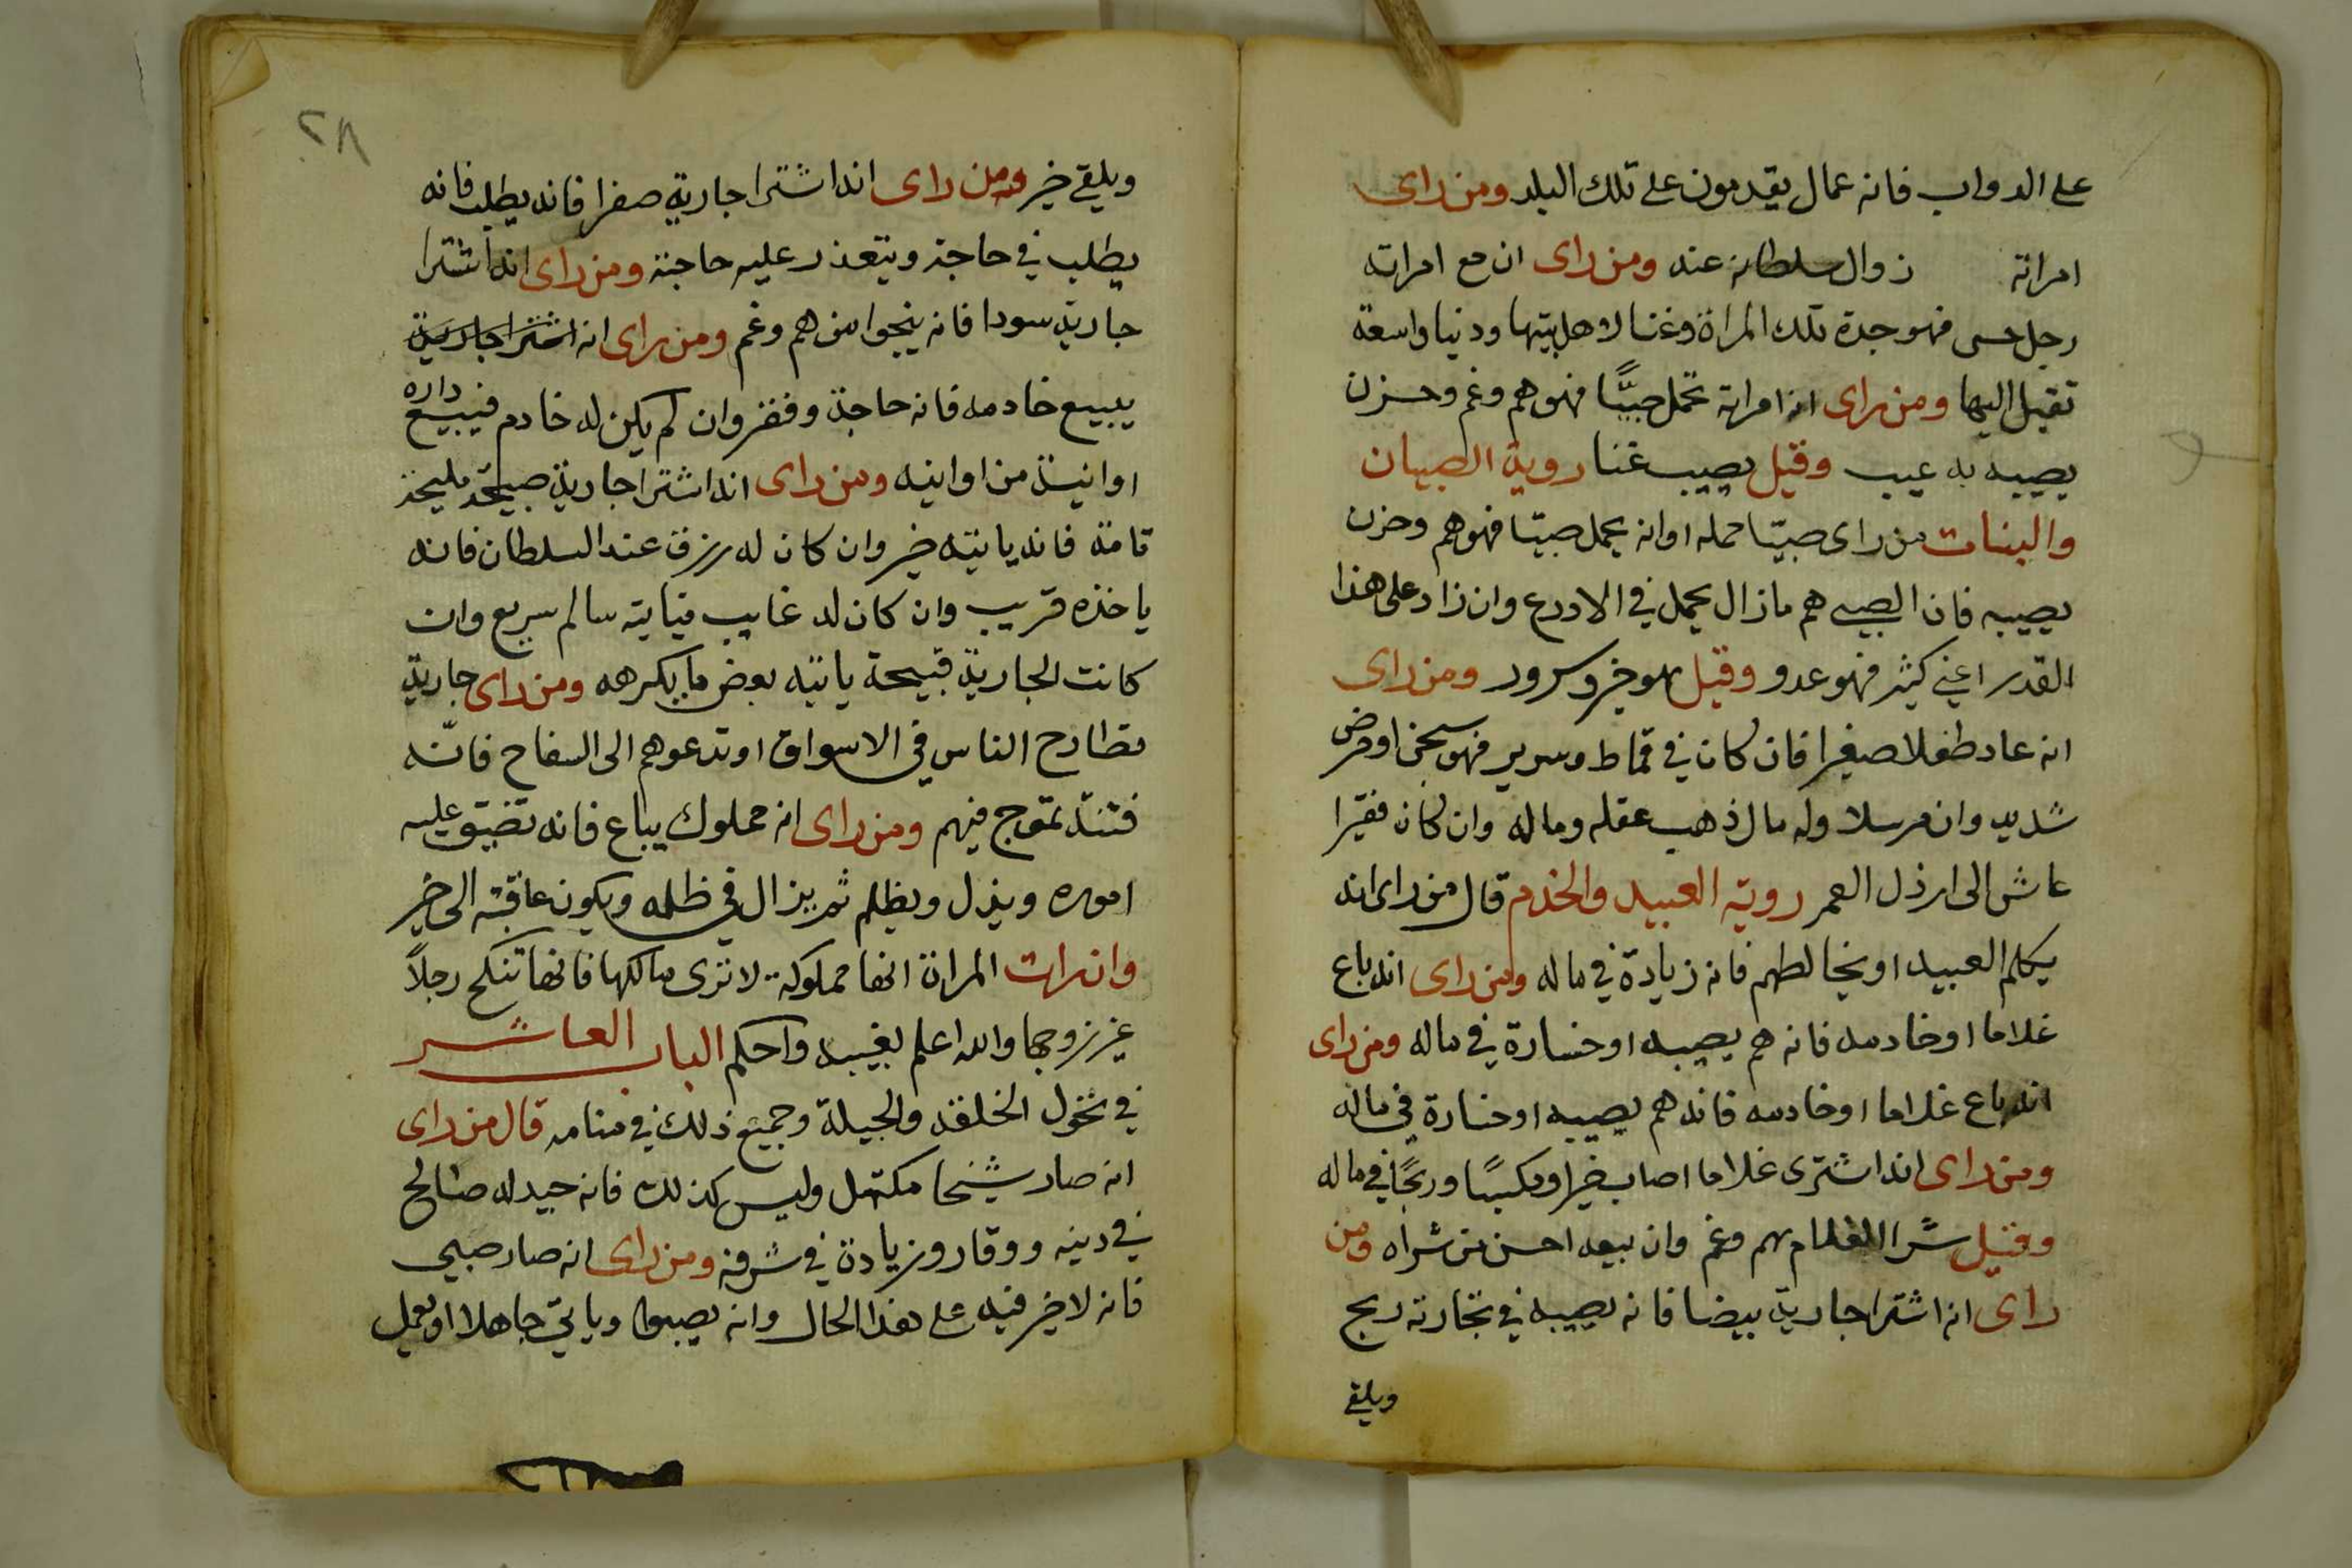 على الدواب فانه عمال يقدمون على تلك البلد ومن راى
امراته زوال سلطانه عنه ومن راى ان مع امراته
رجل حسى فهو جدة تلك المراة وغنا لاهل بيتها ودنيا واسعة
تقبل اليها ومن راى ان امراته تحمل صبيًّا فهو هم وغم وحزن
يصيبه به عيب وقيل يصيب غنا روية الصبيان
والبنات من راى صبيّا حمله او انه يحمل صبيّا فهو هم وحزن
يصيبه فان الصبى هم مازال يحمل في الادرع وان زاد على هذا
القدر اعني كثير فهو عدو وقيل هو خير وسرور ومن راى
انه عاد طفلا صغيرا فان كان في قماط وسرير فهو سجن او مرض
شديد وان مرسلا وله مال ذهب عقله وماله وان كان فقيرا
عاش الى ارذل العمر روية العبيد والخدم قال من راى انه
يكلم العبيد او يخالطهم فانه زيادة في ماله ومن راى انه باع
غلاما او خادمه فانه هم يصيبه او خسارة في ماله ومن راى
انه باع غلاما او خادمه فانه هم يصيبه او خسارة في ماله
ومن راى انه اشترى غلاما اصاب خيرا ومكسبًا وربحًا في ماله
وقيل شرا الغلام هم وغم وان بيعه احسن من شراه ومن
راى انه اشترا جارية بيضا فانه يصيبه في تجارته ربح
ويلقى
٢٨
ويلقى خير ومن راى انه اشترا جارية صفرا فانه يطلب فانه
يطلب في حاجة ويتعذر عليه حاجته ومن راى انه اشترا
جارية سودا فانه ينجوا من هم وغم ومن راى انه اشترا جارية
يبيع خادمه فانه حاجة وفقر وان لم يكن له خادم فيبيع داره
او انية من اوانيه ومن راى انه اشترا جارية صبيحة مليحة
قامة فانه ياتيه خير وان كان له رزق عند السلطان فانه
ياخذه قريب وان كان له غايب فياتيه سالم سريع وان
كانت الجارية قبيحة ياتيه بعض ما يكرهه ومن راى جارية
تطارح الناس في الاسواق او تدعوهم الى السفاح فانّه
فتنة تموج فيهم ومن راى انه مملوك يباع فانه تضيق عليه
اموره ويذل ويظلم ثم يزال في ظلمه ويكون عاقبته الى خير
وان رات المراة انها مملوكة لا ترى مالكها فانها تنكح رجلاً
غير زوجها والله اعلم بغيبه واحكم الباب العاشر
في تحول الخلقة والجبلة وجميع ذلك في منامه قال من راى
انه صار شيخا مكتهل وليس كذلك فانه جيد له صالح
في دينه ووقار وزيادة في شرفه ومن راى انه صار صبي
فانه لا خير فيه على هذا الحال وانه يصبوا وياتي جاهلا او يعمل